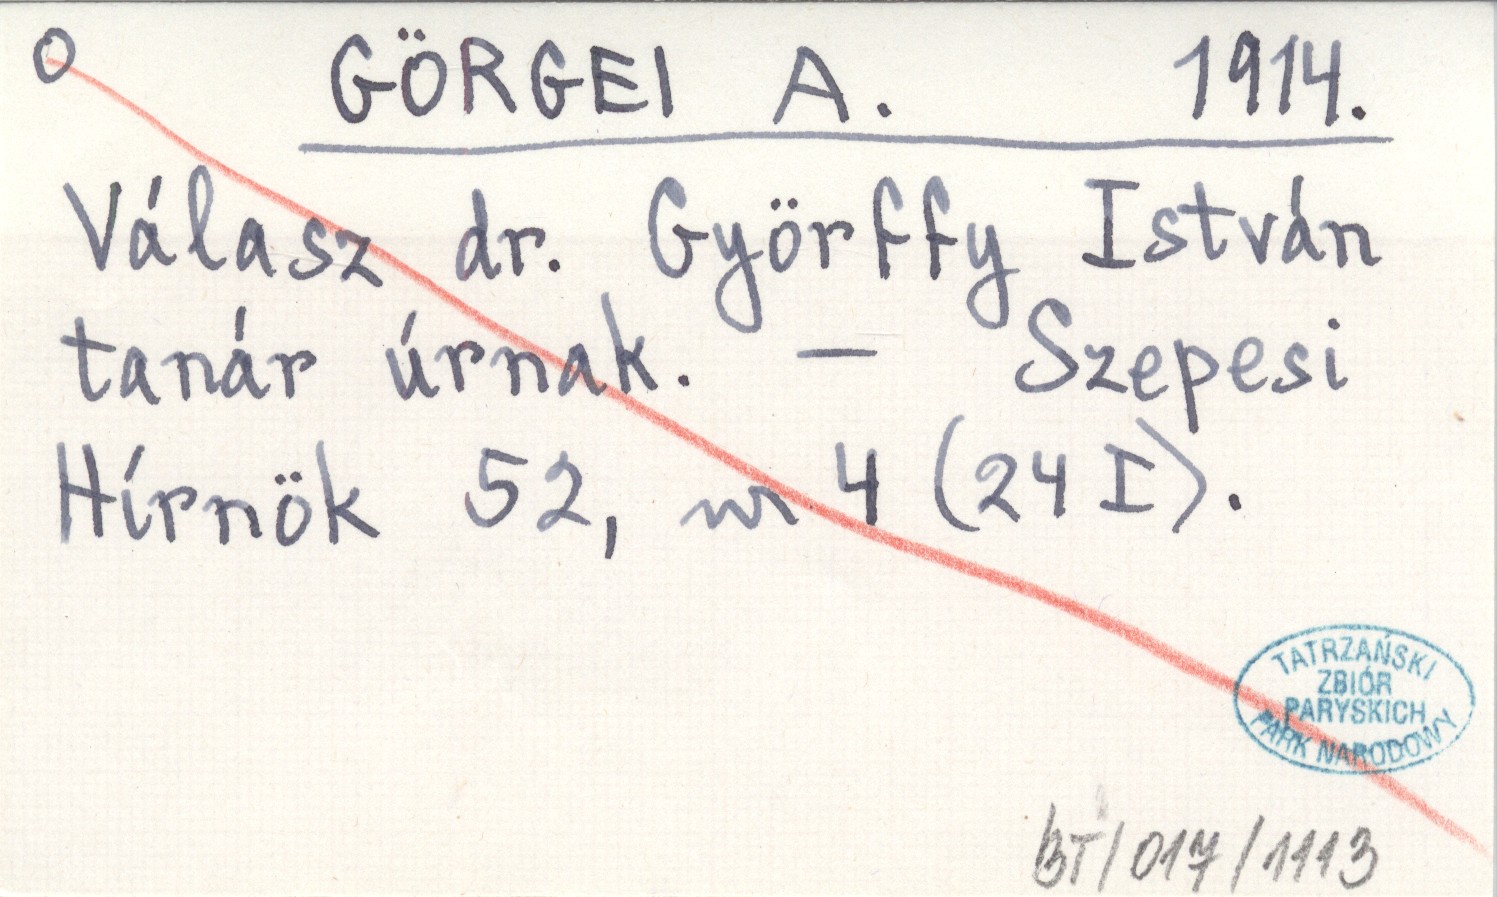 O GÖRGEI A. 1914.
Válasz dr. Györffy István
tanár úrnak. — Szepesi
Hírnök 52, nr 4 (24 I).
TATRZAŃSKI
ZBIÓR
PARYSKICH
PARK NARODOWY
BT/017/1113